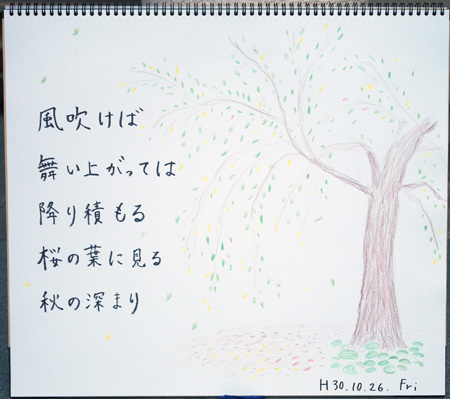 風吹けば
舞い上がっては
降り積もる
桜の葉に見る
秋の深まり
H30.10.26. Fri